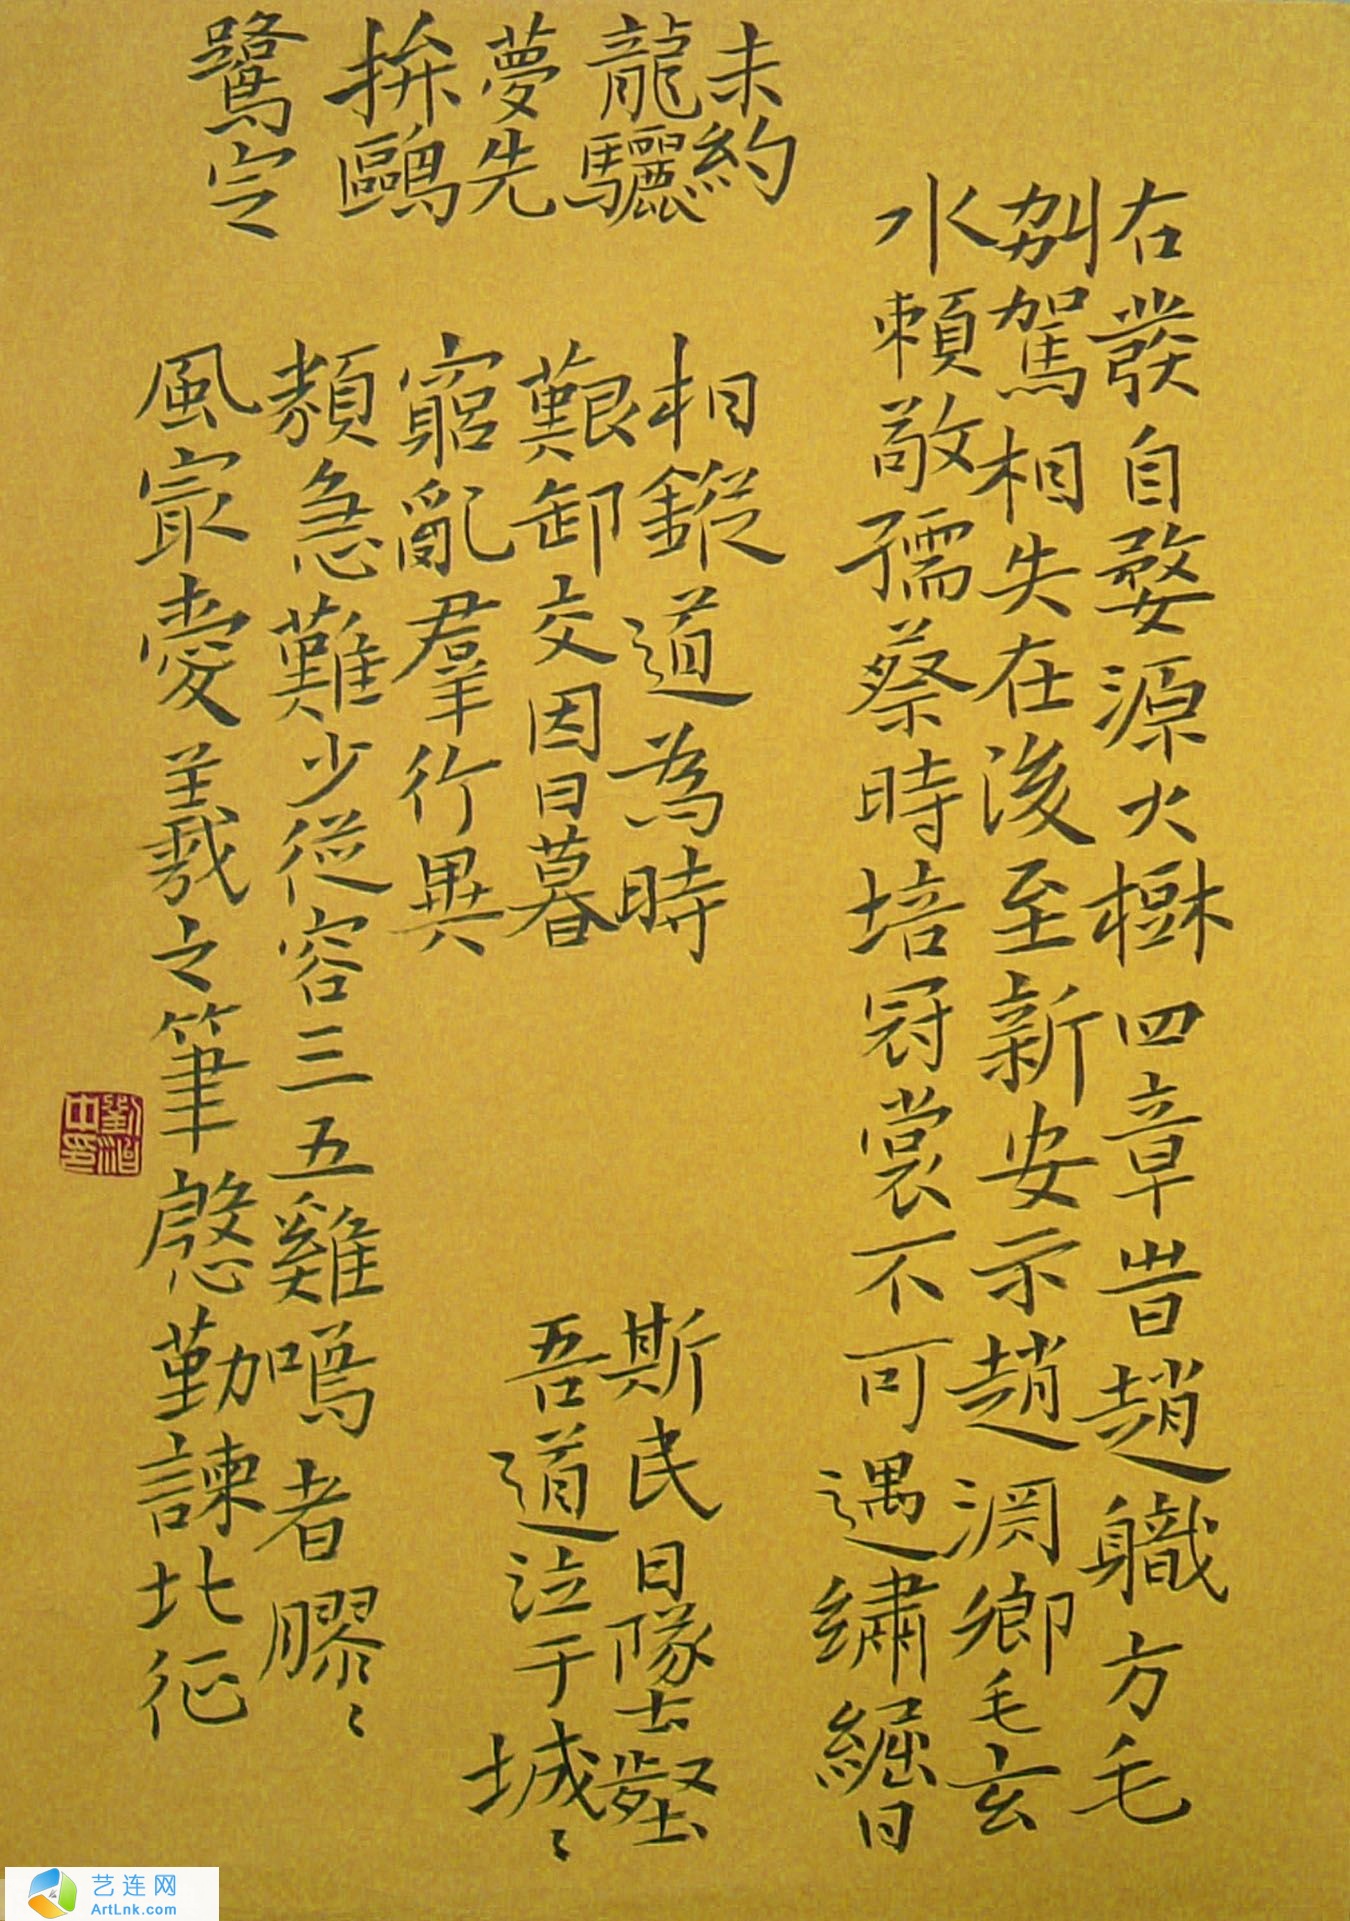 右發自婺源大樹四章昔趙職方毛
別駕相失在後至新安示趙淵鄉毛玄
水賴敞孺蔡時培冠裳不可遇繡組日
未約
龍驪
夢先
拚鷗
鷺定
相鏦道為時
艱卸交因日暮
窮亂羣行異
類急難少從容三五雞鳴者膠〻
風最愛羲之筆慇勤諫北征
斯民日隊士壑
吾道泣于城〻
艺连网
ArtLnk.com